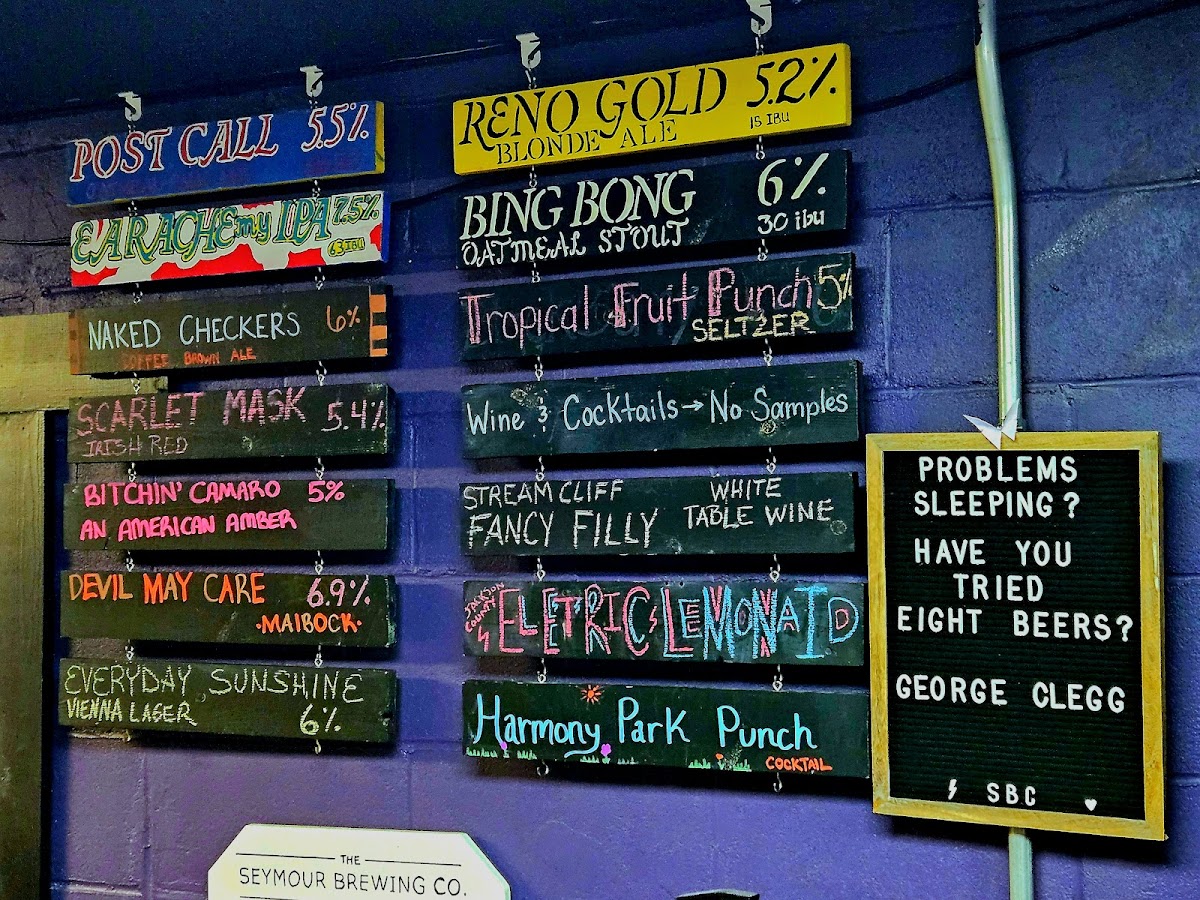 POST CALL 5.5%
EARACHE my IPA 7.5%
63 IBU
NAKED CHECKERS 6%
COFFEE BROWN ALE
SCARLET MASK 5.4%
IRISH RED
BITCHIN' CAMARO 5%
AN AMERICAN AMBER
DEVIL MAY CARE 6.9%
·MAIBOCK·
EVERYDAY SUNSHINE
VIENNA LAGER 6%
RENO GOLD 5.2%
BLONDE ALE 15 IBU
BING BONG 6%
OATMEAL STOUT 30 ibu
Tropical Fruit Punch 5%
SELTZER
Wine & Cocktails → No Samples
STREAM CLIFF WHITE
FANCY FILLY TABLE WINE
JACKSON
COUNTY
ELETRIC LEMONAID
Harmony Park Punch
COCKTAIL
PROBLEMS
SLEEPING?
HAVE YOU
TRIED
EIGHT BEERS?
GEORGE CLEGG
SBC
THE
SEYMOUR BREWING CO.